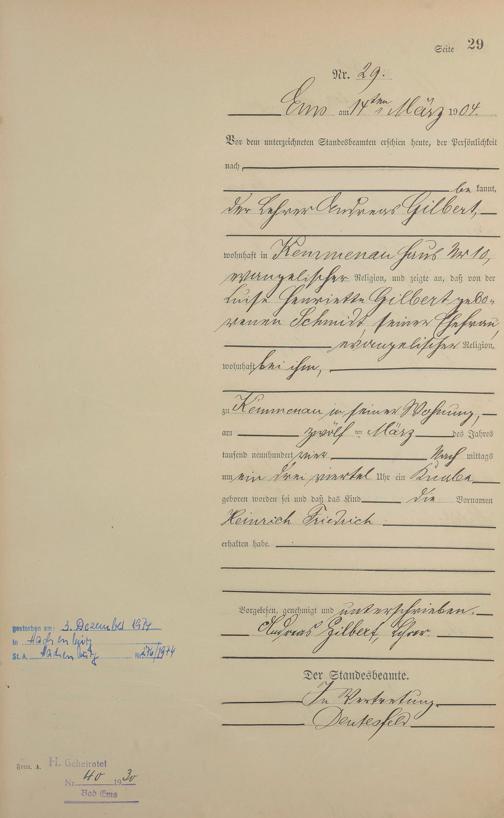 Seite 29
Nr. 29.
Ems am 14ten März 1904.
Vor dem unterzeichneten Standesbeamten erschien heute, der Persönlichkeit
nach
be kannt,
der Lehrer Andreas Gilbert,
wohnhaft in Kemmenau Haus Nr 10,
evangelischer Religion, und zeigte an, daß von der
Luise Henriette Gilbert gebo-
renen Schmidt, seiner Ehefrau,
evangelischer Religion,
wohnhaft bei ihm,
zu Kemmenau in seiner Wohnung,
am zwölften März des Jahres
tausend neunhundert vier Nach mittags
um ein drei viertel Uhr ein Knabe
geboren worden sei und daß das Kind die Vornamen
Heinrich Friedrich
erhalten habe.
Vorgelesen, genehmigt und unterschrieben.
Andreas Gilbert, Lehrer.
Der Standesbeamte.
In Vertretung
gestorben am: 3. Dezember 1974
in Hachenburg
St. A. Hachenburg Nr. 276/1974
H. Geheiratet
Nr. 40 1930
Bad Ems